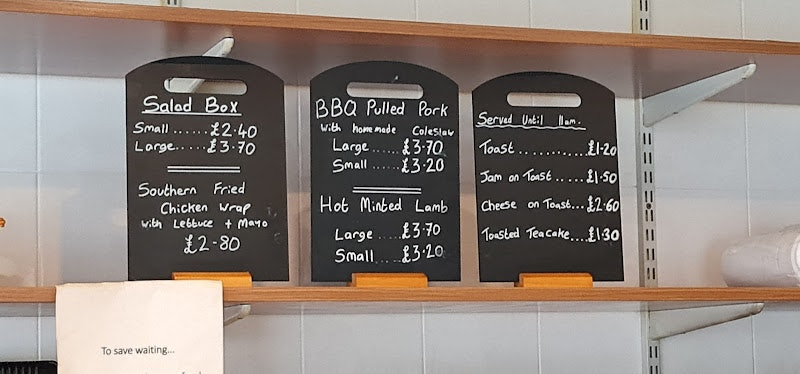 Salad Box
Small ...... £2.40
Large ...... £3.70
Southern Fried
Chicken Wrap
With Lettuce + Mayo
£2-80
BBQ Pulled Pork
With homemade Coleslaw
Large ..... £3.70
Small ..... £3.20
Hot Minted Lamb
Large ..... £3.70
Small ..... £3.20
Served Until 11am.
Toast ........... £1.20
Jam on Toast ..... £1.50
Cheese on Toast... £2.60
Toasted Teacake.... £1.30
To save waiting...